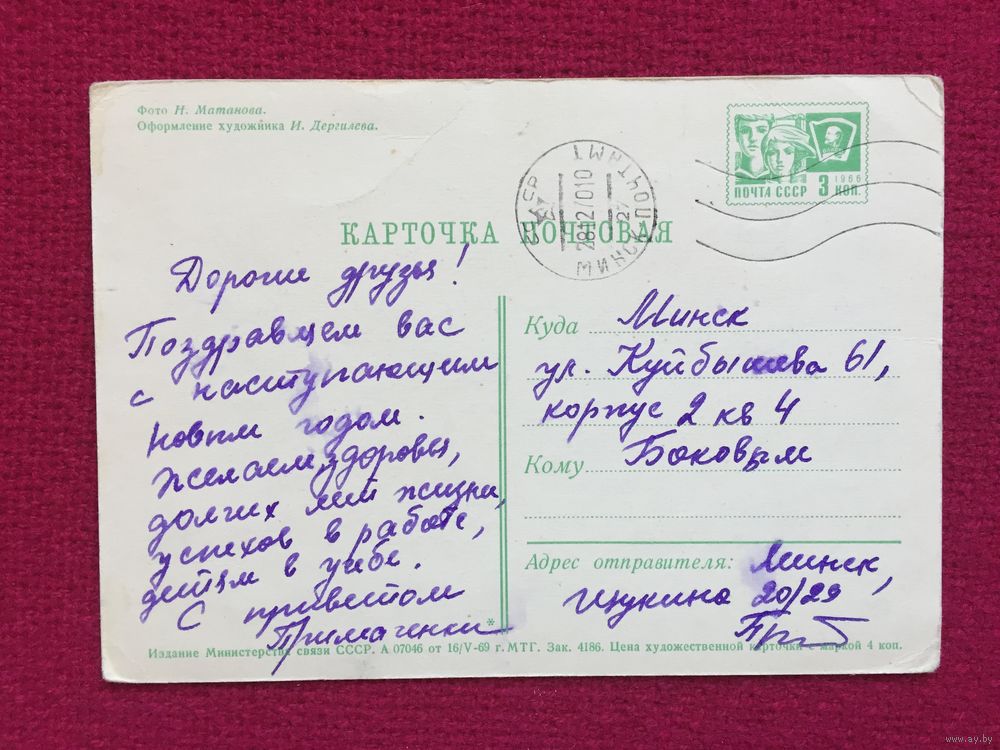 Фото Н. Матанова.
Оформление художника И. Дергилева.
1966
ПОЧТА СССР 3 КОП.
МИНСК ПОЧТАМТ
КАРТОЧКА ПОЧТОВАЯ
Дорогие друзья!
Поздравляем вас
с наступающим
новым годом.
Желаем здоровья,
долгих лет жизни,
успехов в работе,
детям в учебе.
С приветом
Примаченки
Куда Минск
ул. Куйбышева 61,
корпус 2 кв 4
Кому Боковым
Адрес отправителя: Минск,
Щукина 20/29
*
Издание Министерства связи СССР. А 07046 от 16/V-69 г. МТГ. Зак. 4186. Цена художественной карточки с маркой 4 коп.
www.ay.by